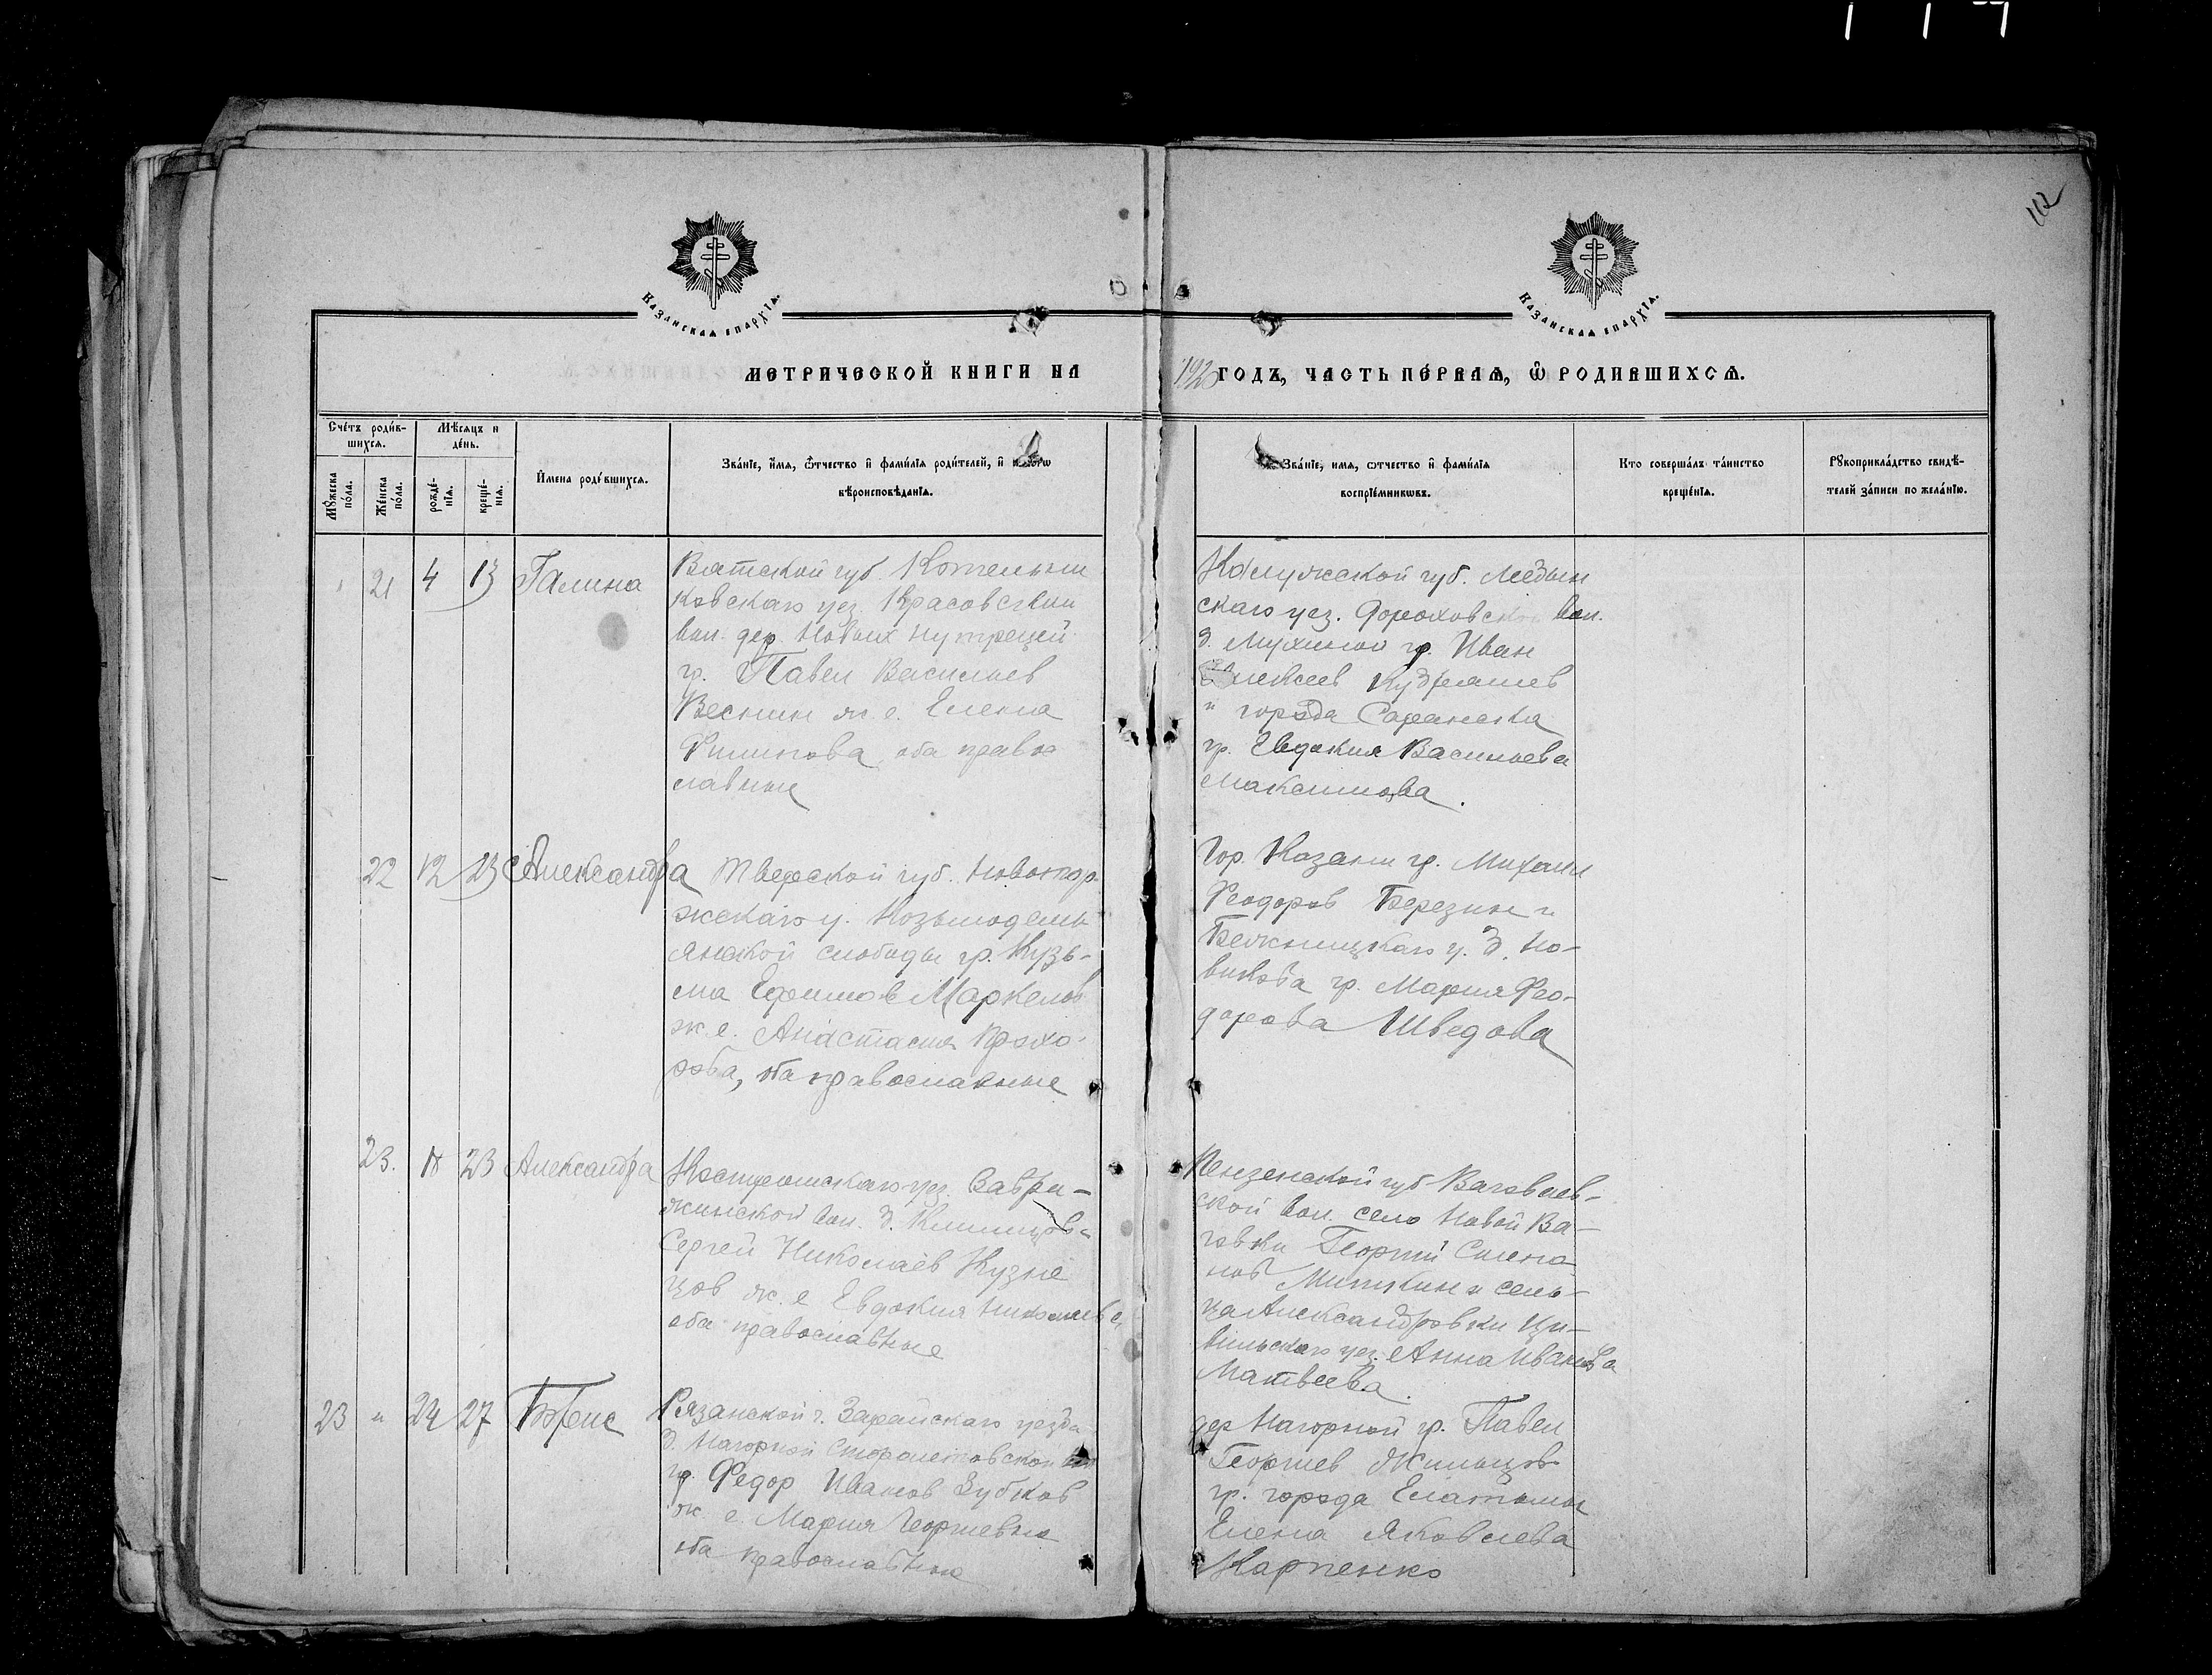 112
Казанская епархїя.
Казанская епархїя.
МЕТРИЧЕСКОЙ КНИГИ НА 1920 ГОДЪ, ЧАСТЬ ПЕ́РВАЯ, Ѿ РОДИВШИХСЯ.
Сче́тъ роди́в-
шихся.
Мѣ́сяцъ и
де́нь.
Мꙋ́жеска по́ла.
Же́нска по́ла.
рожде́-
нїя.
креще́-
нїя.
И҆мена роди́вшихся.
Зва́нїе, и҆́мя, ѻ҆́тчество и҆ фами́лїя роди́телей, и҆
вѣроисповѣ́данїя.
Зва́нїе, имя, отчество и҆ фами́лїя
воспрїе́мникѡвъ.
Кто соверша́лъ та́инство
креще́нїя.
Рꙋкоприкла́дство свидѣ́-
телей за́писи по жела́нїю.
21 4 13 Галина
Вятской губ. Котельни
ковскаго уез. Красовской
вол. дер. Новых
гр. Павел Васильев
Веснин ж. е. Елена
Филипова оба право
славные
Калужской губ. Медын
скаго уез. вол.
д. гр. Иван
Алексеев Кудряшев
и города Саранска
гр. Евдокия Васильева
Максимова.
22 12 23 Александра
Тверской губ. Новотор-
жскаго у. Козьмодемь
янской слободы гр. Кузь-
ма Ефимов Маркелов
ж. е. Анастасия Прохо-
рова, оба православные
Гор. Казани гр. Михаил
Феодоров Березин и
у. д. Но-
викова гр. Мария Фео-
дорова Шведова
23. 23 Александра
Костромскаго уез.
жинской вол. д.
Сергей Николаев Кузне
цов ж. е Евдокия Николаева
оба православные
Пензенской губ
ской вол. село Новой Ва-
Георгий
нов и сель-
ца Александровки Ци-
вильскаго уез. Анна Иванова
Матвеева.
23 " 24 27 Борис
Рязанской г. Зарайскаго уезда
д. Нагорной
гр. Федор Иванов Зубков
ж. е. Мария Георгиевна
оба православные
дер Нагорной гр. Павел
Георгиев Жильцов
гр. города Елатьмы
Елена Яковлева
Карпенко